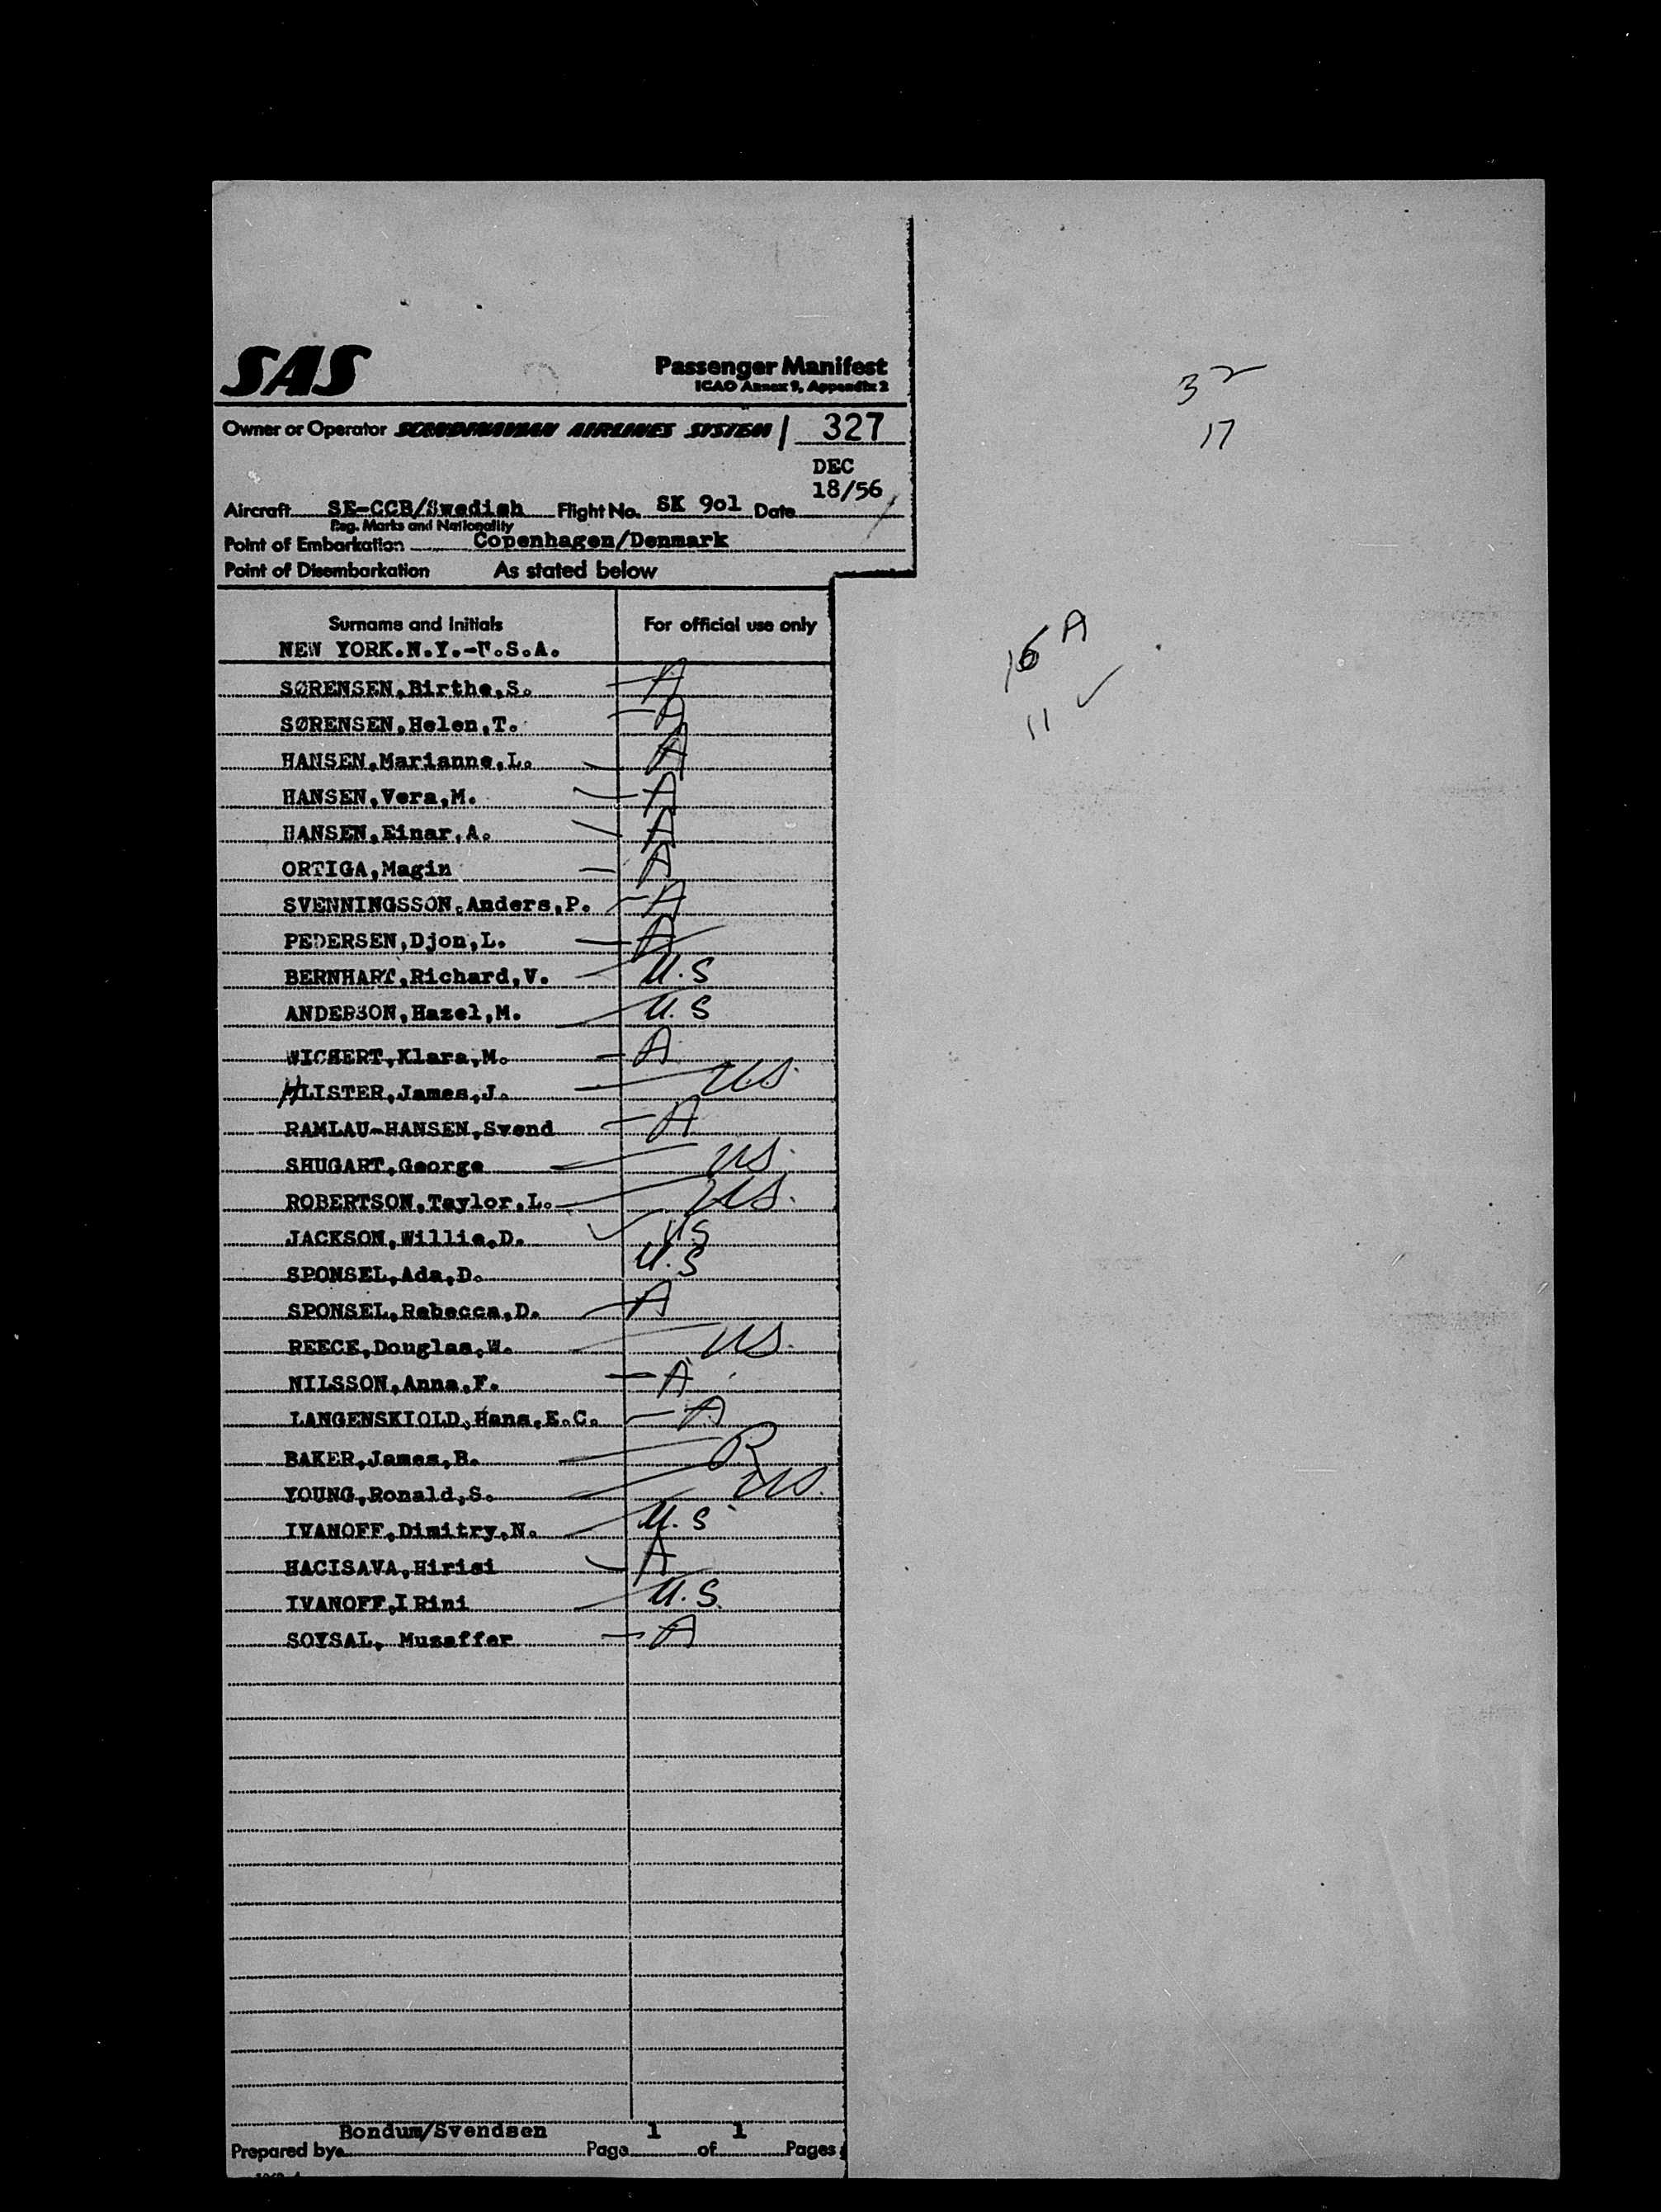 SAS
Passenger Manifest
ICAO Annex 9, Appendix 2
Owner or Operator SCANDINAVIAN AIRLINES SYSTEM 327
DEC
18/56
Aircraft SE-CCB/Swedish Flight No. SK 901 Date
Reg. Marks and Nationality
Point of Embarkation Copenhagen/Denmark
Point of Disembarkation As stated below
Surname and Initials For official use only
NEW YORK.N.Y.-U.S.A.
SØRENSEN,Birthe,S. A
SØRENSEN,Helen,T. A
HANSEN,Marianne,L. A
HANSEN,Vera,M. A
HANSEN,Einar,A. A
ORTIGA,Magin A
SVENNINGSSON,Anders,P. A
PEDERSEN,Djon,L. A
BERNHART,Richard,V. U.S
ANDERSON,Hazel,M. U.S
WICHERT,Klara,M. A
HLISTER,James,J. US.
RAMLAU-HANSEN,Svend A
SHUGART,George US.
ROBERTSON,Taylor,L. US.
JACKSON,Willie,D. US
SPONSEL,Ada,D. U.S
SPONSEL,Rebecca,D. A
REECE,Douglas,W. US.
NILSSON,Anna,F. A
LANGENSKIOLD,Hans,E.C. A
BAKER,James,B. R
YOUNG,Ronald,S. US.
IVANOFF,Dimitry,N. U.S
HACISAVA,Hirisi A
IVANOFF,I Rini U.S.
SOYSAL, Muzaffer A
Bondum/Svendsen 1 1
Prepared by Page of Pages
32
17
16 A
11